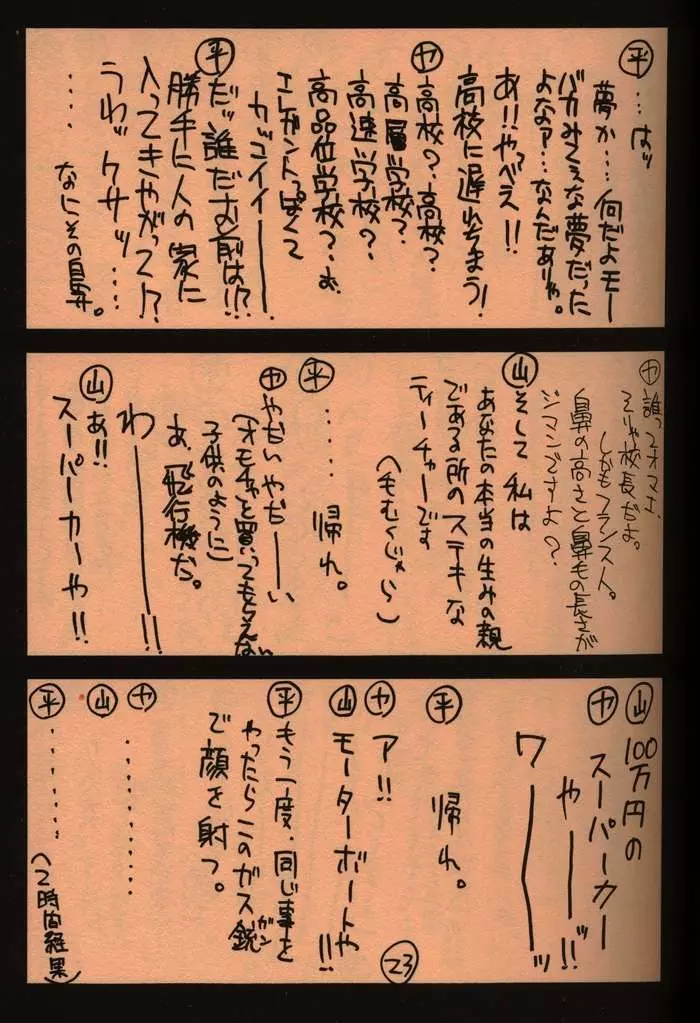 ㊥平 …はッ
夢か…何だよモー
バカみてぇな夢だった
よなァ…なんだありゃ。
あ!!やっべえ!!
高校に遅れちまう!
ヤ 高校?高校?
高層学校?
高速学校?
高品位学校?お、
エレガントっぽくて
カッコイイー
平 だッ誰だお前は!?
勝手に人の家に
入ってきやがって!?
うわックサッ…
…なにその鼻。
ヤ 誰ってオマエ、
そりゃ校長だよ。
しかもフランス人。
鼻の高さと鼻毛の長さが
ジマンですよ?
山 そして私は
あなたの本当の生みの親
である所のステキな
ティーチャーです
(毛むくじゃら)
平 ……帰れ。
ヤ やだいやだーい
(オモチャを買ってもらえない
子供のように)
あ、飛行機だ。
わー!!
山 あ!!
スーパーカーや!!
山 100万円の
ヤ スーパーカー
やーッ!!
ワーッ
平 帰れ。
ヤ ア!!
山 モーターボートや!!
平 もう一度、同じ事を
やったらこのガス銃
ガン
で顔を射つ。
ヤ ………
山
平 ………
(2時間経果)
23